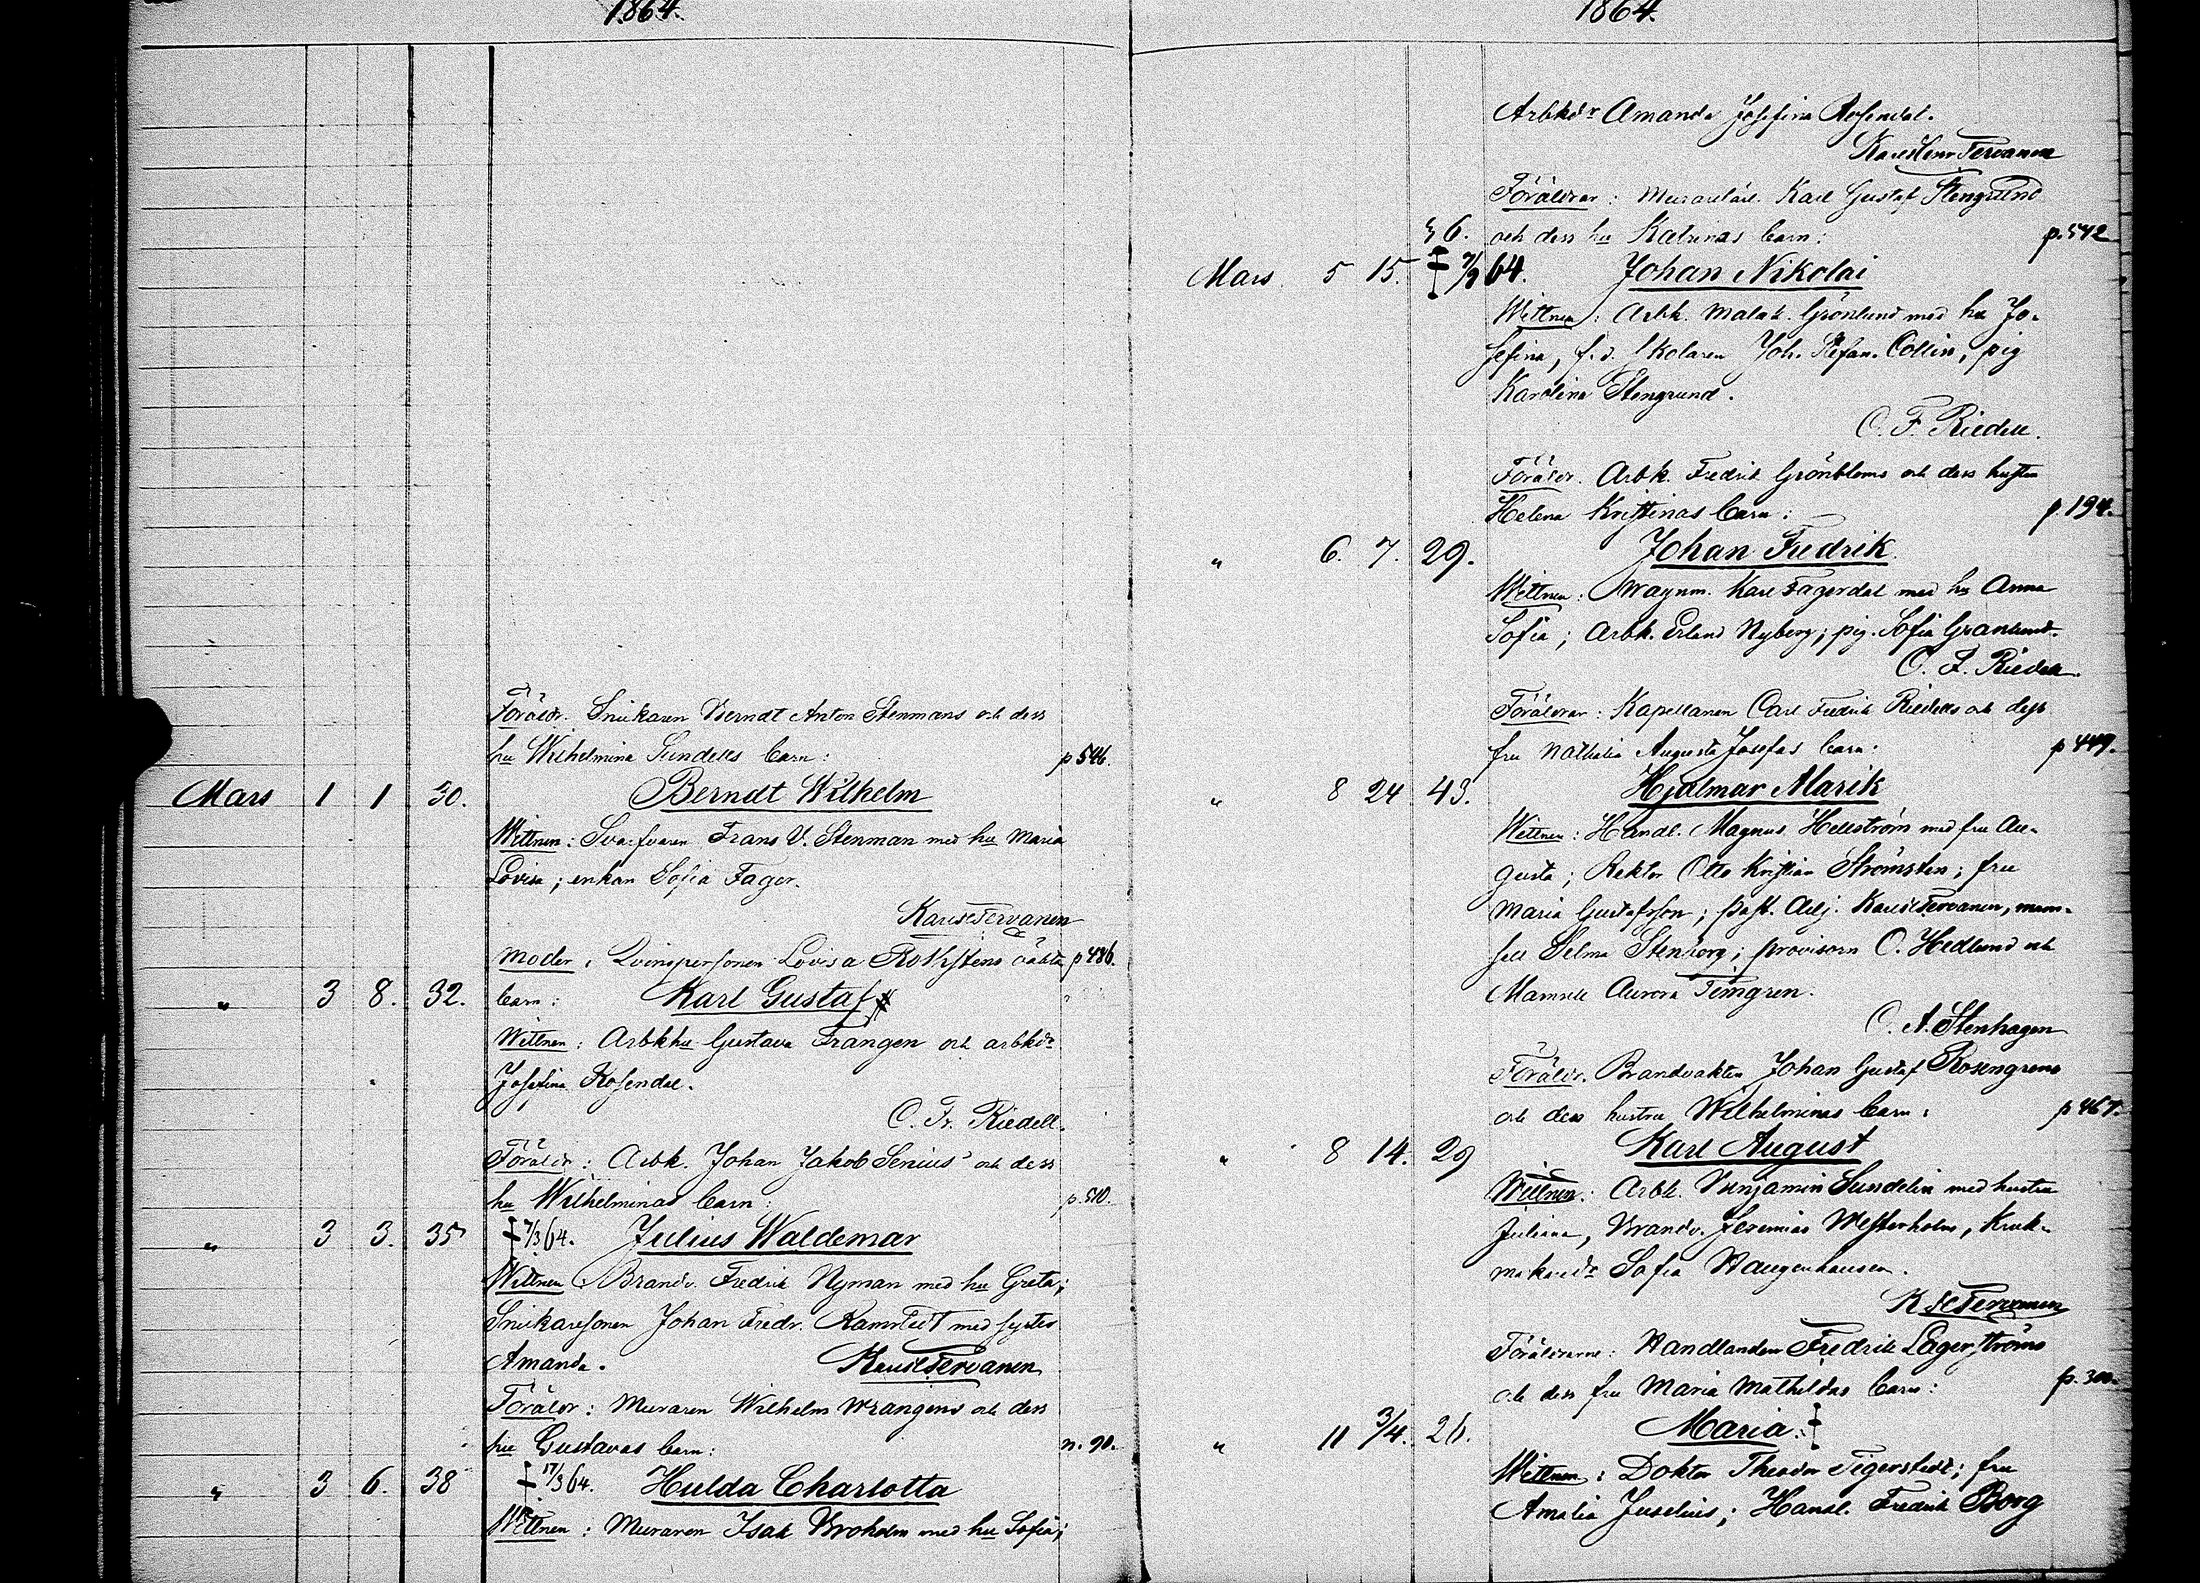 1864.
Föräldr. Snikaren Berndt Anton Stenmans och dess
hu Wilhelmina Sundells barn: p 546.
Mars 1 1 30. Berndt Wilhelm
Wittnen: Svarfvaren Frans V. Stenman med hu Maria
Lovisa; enkan Sofia Fager.
Karl Tervanen
Moder, Qvinspersonen Lovisa Rothstens oäkta p 486.
" 3 8. 32. barn: Karl Gustaf
Wittnen: Arbkhu Gustava Frangen och arbkdr
Josefina Rosendal.
C. Fr. Riedell.
Föräldr: Arbk. Johan Jakob Senius' och dess
hu Wilhelminas barn: p. 510.
" 3 3. 35 ‡ 7/3 64. Julius Waldemar
Wittnen Brandv. Fredrik Nyman med hu Greta;
Snikaresonen Johan Fredr. Ramstedt med syster
Amanda. Karl Tervanen
Föräldr: Muraren Wilhelm Wrangens och dess
hu Gustavas barn: n. 90.
" 3 6. 38 ‡ 17/3 64. Hulda Charlotta
Wittnen: Muraren Isak Broholm med hu Sofia;
1864.
Arbkdr Amanda Josefina Rosendal.
Tervanen
Föräldrar: Murarelärl. Karl Gustaf Stengrund
36. och dess hu Katrinas barn: p. 542
Mars 5 15. ‡ 7/9 64. Johan Nikolai
Wittnen: Arbk. Malak. Grönlund med hu Jo-
sefina, f.d. skolaren Joh. Stefan Collin, pig
Karolina Stengrund.
C. F. Riedell.
Föräldr. Arbk. Fredrik Grönbloms och dess hustru
Helena Kristinas barn: p. 194.
" 6. 7. 29. Johan Fredrik
Wittnen: Wagnm. Karl Fagerdal med hu Anna
Sofia; Arbk. Erland Nyberg; pig. Sofia Granlund.
C. F. Riedell.
Föräldrar: Kapellanen Carl Fredrik Riedells och dess
fru Nathalia Augusta Josefas barn: p 449.
" 8 24 43. Hjalmar Alarik
Wittnen: Handl. Magnus Hellström med fru Au-
gusta; Rektor Otto Kristian Strömsten; fru
Maria Gustafsson; past. Adj. Karl Tervanen, mam-
sell Selma Stenborg; provisorn C. Hedlund och
Mamsell Aurora Timgren.
C. A. Stenhagen
Föräldr. Brandvakten Johan Gustaf Rosengrens
och dess hustru Wilhelminas barn: p 467.
" 8 14. 29 Karl August
Wittnen: Arbk. Benjamin Sundelin med hustru
Juliana, Brandv. Jeremias Westerholm, Kruk-
makaredr Sofia Haugenhausen.
K Tervanen
Föräldrarne: Handlanden Fredrik Lagerströms
och dess fru Maria Mathildas barn: p. 300.
" 11 3/4. 26. Maria. ‡
Wittnen: Doktor Theodor Tigerstedt; fru
Amalia Juselius; Handl. Fredrik Borg